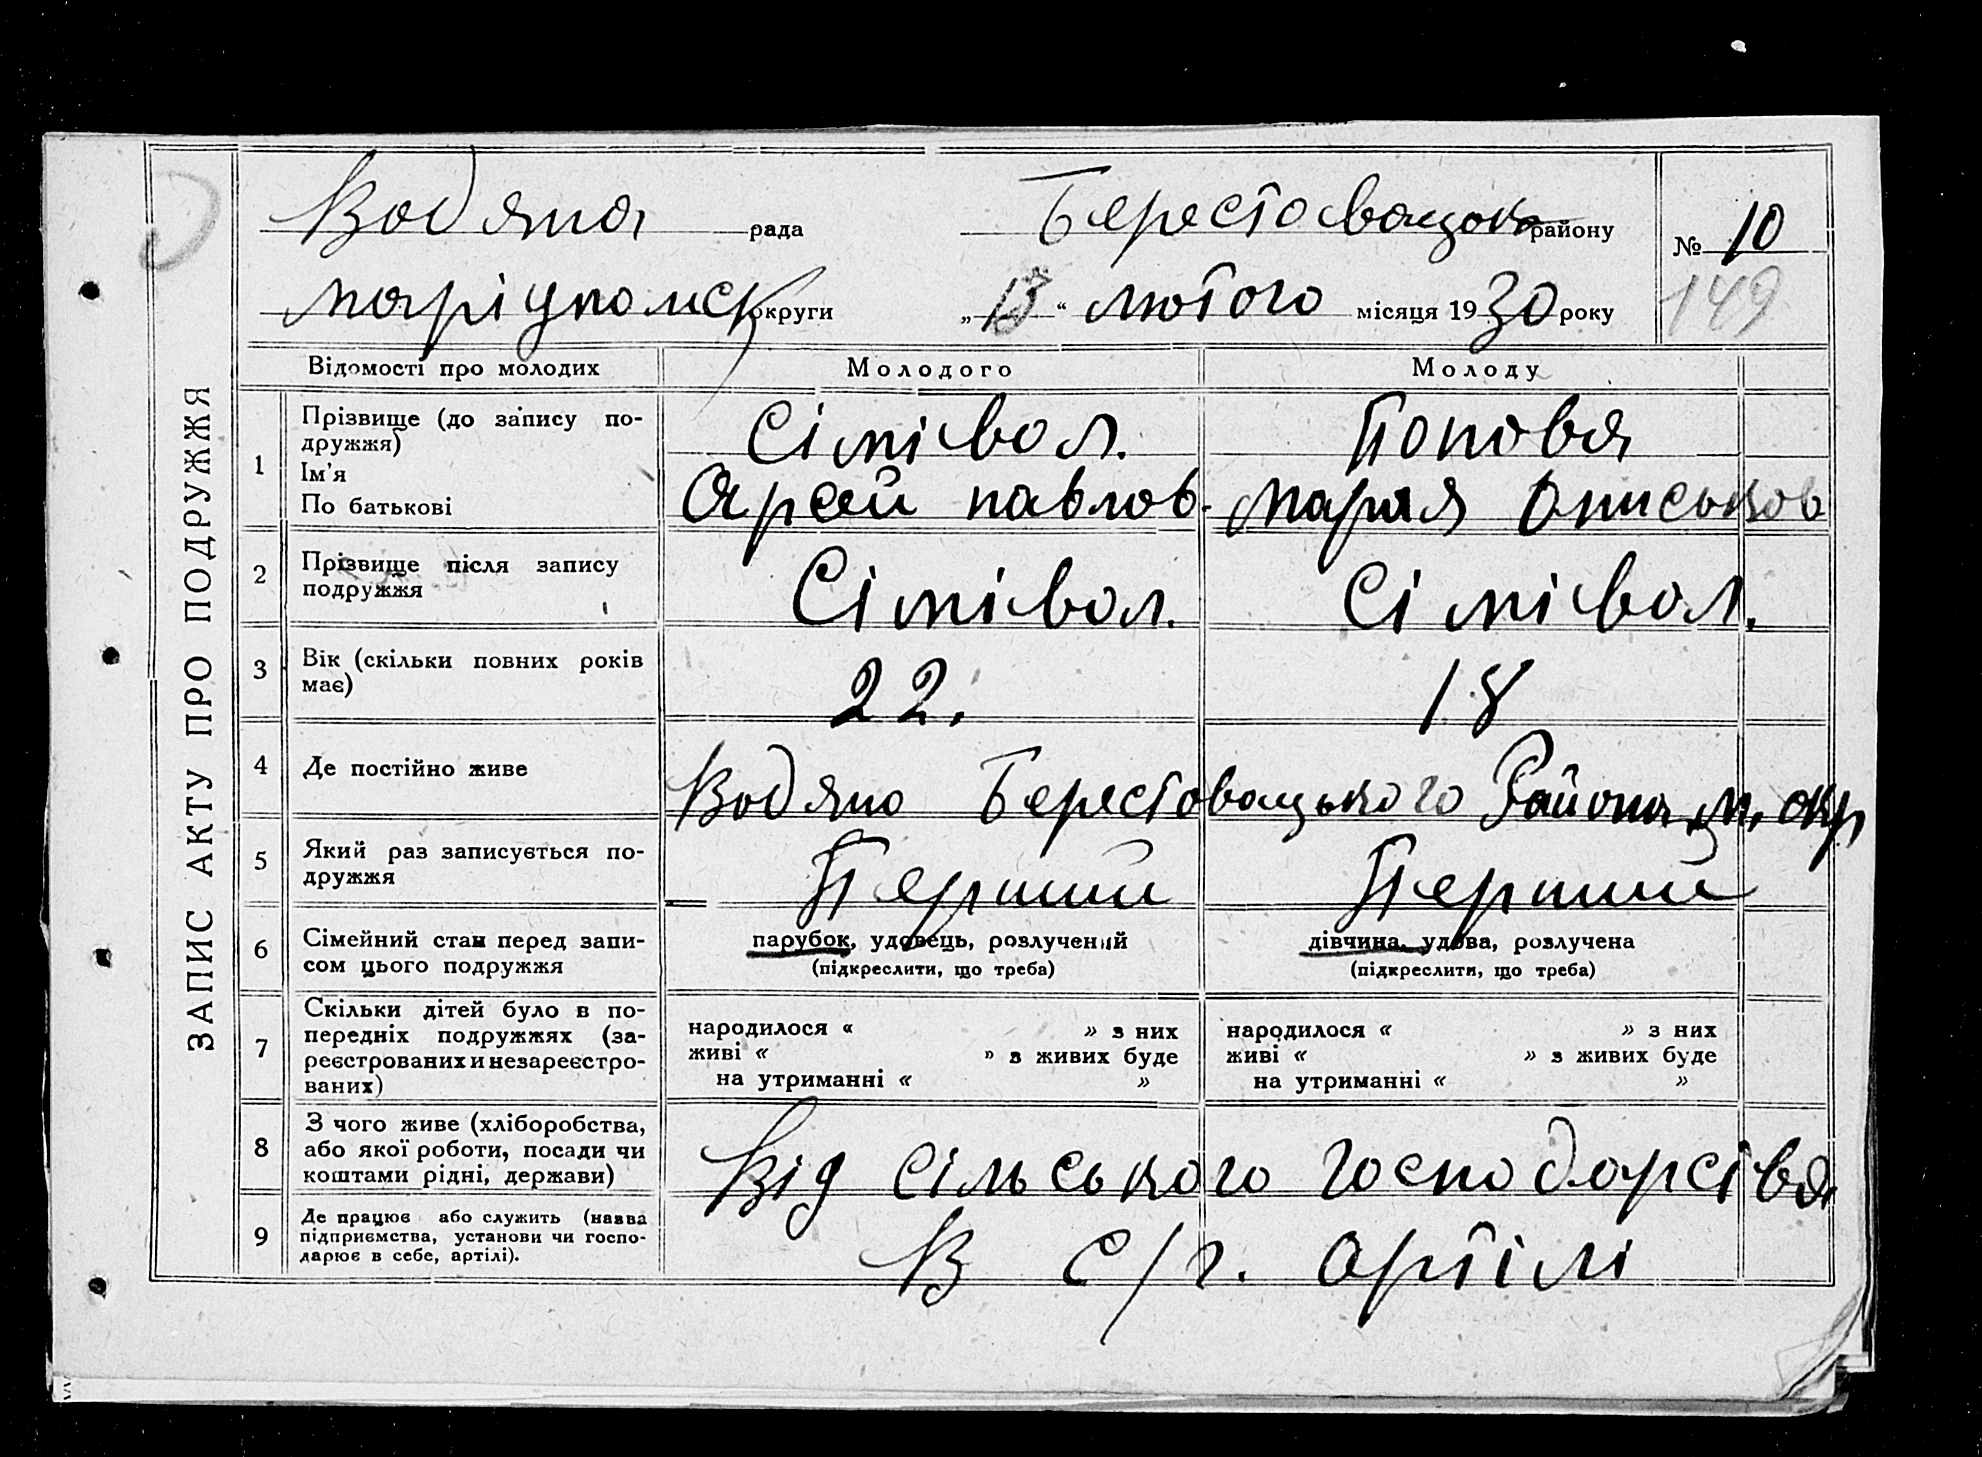 ЗАПИС АКТУ ПРО ПОДРУЖЖЯ
Водяна рада Берестовацьк району № 10
маріупольск округи „13“ лютого місяця 1930 року 149
Відомості про молодих Молодого Молоду
1 Прізвище (до запису по-
дружжя) Сімівол. Попова
Ім'я
По батькові Арсей павлов. Мария
2 Прізвище після запису
подружжя Сімівол. Сімівол.
3 Вік (скільки повних років
має) 22. 18
4 Де постійно живе Водяно Берестовацького Района М. окр
5 Який раз записується по-
дружжя Перший Перший
6 Сімейний стан перед запи-
сом цього подружжя парубок, удовець, розлучений дівчина, удова, розлучена
(підкреслити, що треба) (підкреслити, що треба)
7 Скільки дітей було в по-
передніх подружжях (за-
реєстрованих и незареєстро-
ваних)
народилося « » з них народилося « » з них
живі « » з живих буде живі « » з живих буде
на утриманні « » на утриманні « »
8 З чого живе (хліборобства,
або якої роботи, посади чи
коштами рідні, держави) Від сільського господарства
9 Де працює або служить (назва
підприємства, установи чи госпо-
дарює в себе, артілі). В с/г. артілі